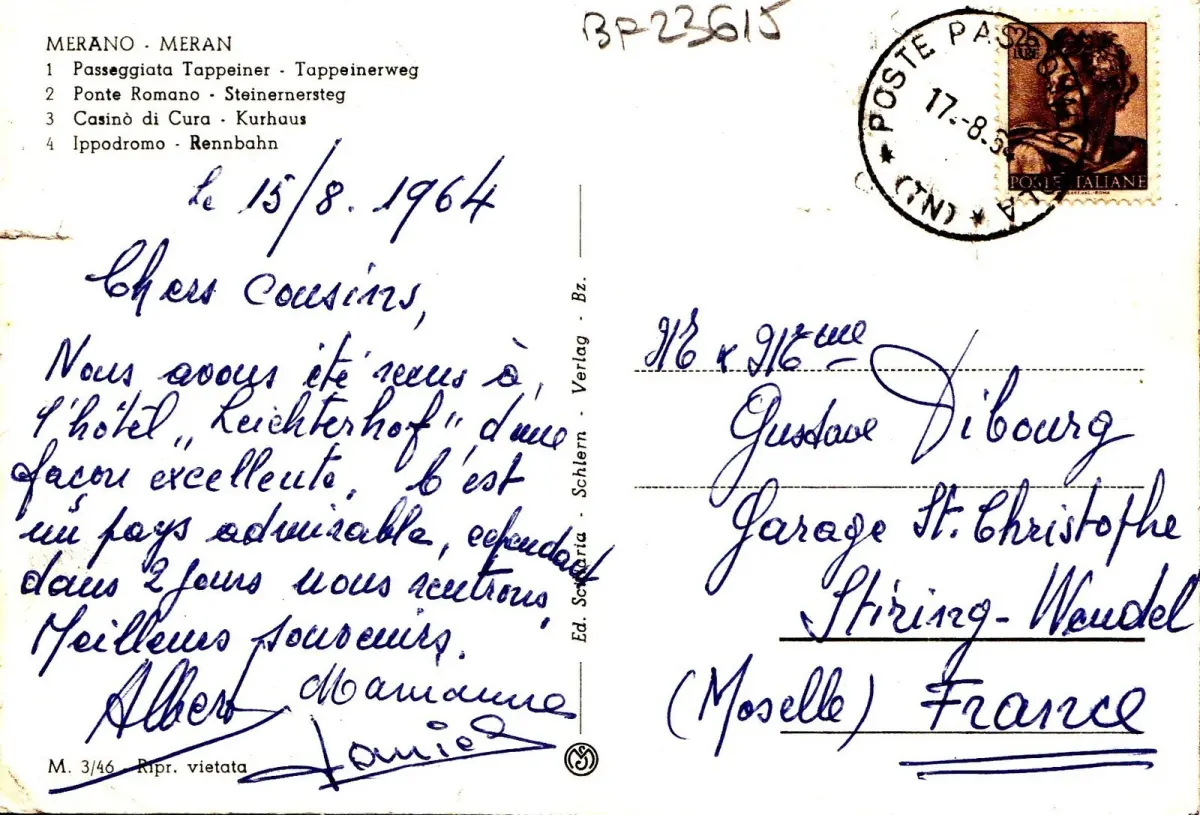 BP23615
MERANO - MERAN
1 Passeggiata Tappeiner - Tappeinerweg
2 Ponte Romano - Steinernersteg
3 Casinò di Cura - Kurhaus
4 Ippodromo - Rennbahn
POSTE
17.-8.64
(TN)
25
LIRE
POSTE ITALIANE
Le 15/8. 1964
Chers Cousins,
Nous avons été reçus à
l'hôtel „Leichterhof" d'une
façon excellente. C'est
un pays admirable, cependant
dans 2 jours nous rentrons.
Meilleurs souvenirs.
Albert Marianne
Daniel
M. 3/46 - Ripr. vietata
Schlern - Verlag - Bz.
Mr & Mme
Gustave Dibourg
Garage St. Christophe
Stiring-Wendel
(Moselle) France